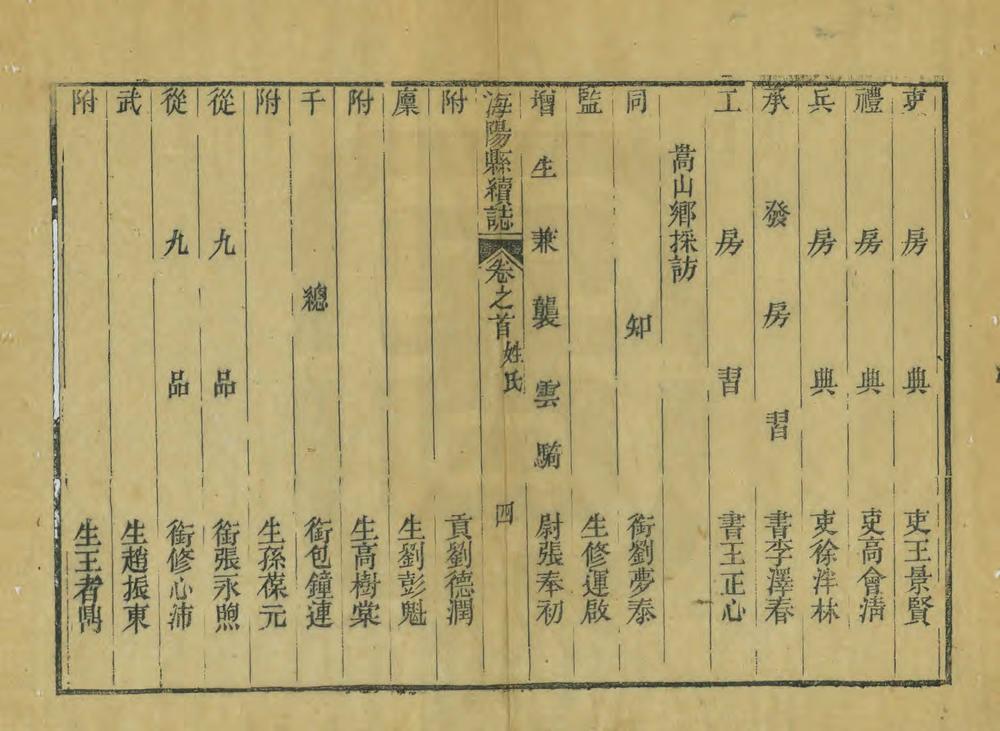 吏房典吏王景賢
禮房典吏高會清
兵房典吏徐泮林
承發房習書李澤春
工房習書王正心
嵩山鄉採訪
同知銜劉夢泰
監生修運啟
增生兼襲雲騎尉張奉初
海陽縣續誌 卷之首 姓氏 四
附貢劉德潤
廩生劉彭魁
附生高樹棠
千總銜包鐘連
附生孫葆元
從九品銜張永煦
從九品銜修心沛
武生趙振東
附生王者鼎